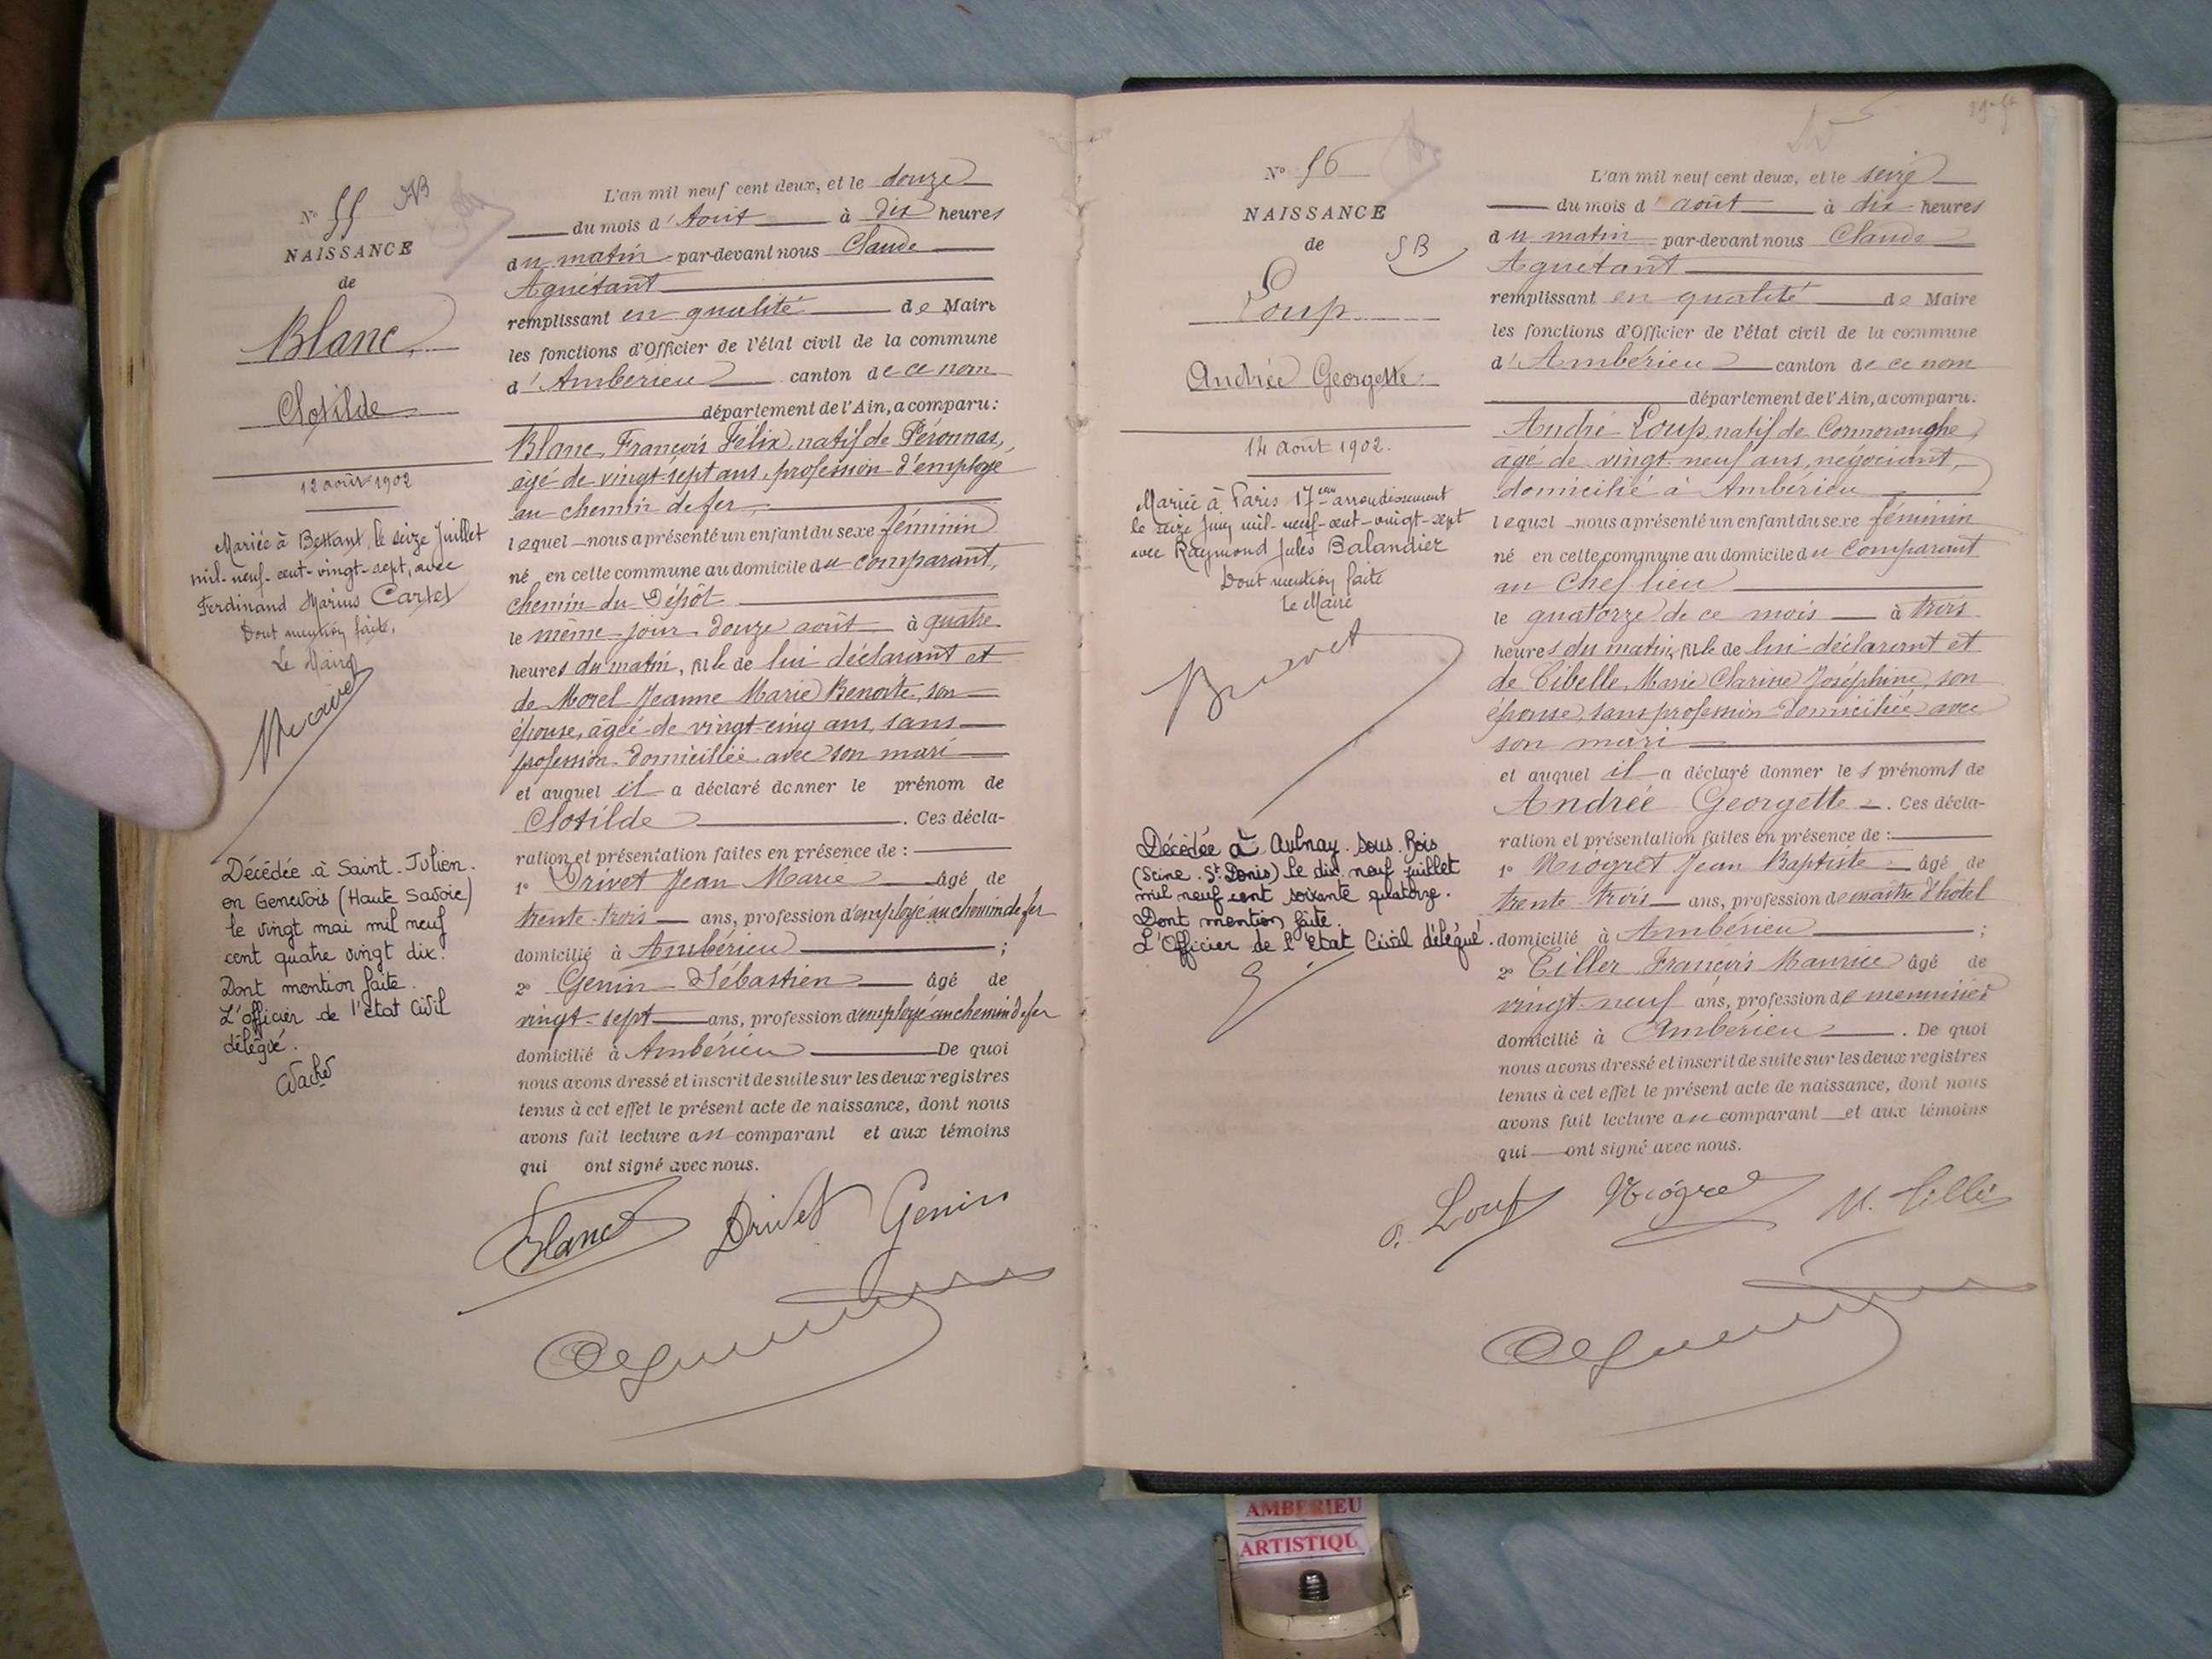 N° 55
NAISSANCE
de
Blanc
Clotilde
12 août 1902
Mariée à Bettant, le seize Juillet
mil-neuf-cent-vingt-sept, avec
Ferdinand Marius Cartet
Dont mention faite,
Le Maire
Décédée à Saint-Julien-
en Genevois (Haute Savoie)
le vingt mai mil neuf
cent quatre vingt dix.
Dont mention faite.
L'officier de l'état Civil
délégué.
L'an mil neuf cent deux, et le douze
du mois d'Août à dix heures
du matin par-devant nous Claude
Aguétant
remplissant en qualité de Maire
les fonctions d'Officier de l'état civil de la commune
d'Ambérieu canton de ce nom
département de l'Ain, a comparu:
Blanc, François Félix, natif de Péronnas,
âgé de vingt-sept ans, profession d'employé
au chemin de fer,
lequel nous a présenté un enfant du sexe féminin
né en cette commune au domicile du comparant,
chemin du Dépôt
le même jour douze août à quatre
heures du matin, fille de lui déclarant et
de Morel Jeanne Marie Benoite, son
épouse, âgée de vingt-cinq ans, sans
profession domiciliée avec son mari
et auquel il a déclaré donner le prénom de
Clotilde. Ces décla-
ration et présentation faites en présence de :
1° Drivet Jean Marie âgé de
trente-trois ans, profession d'employé au chemin de fer
domicilié à Ambérieu ;
2° Genin Sébastien âgé de
vingt-sept ans, profession d'employé au chemin de fer
domicilié à Ambérieu De quoi
nous avons dressé et inscrit de suite sur les deux registres
tenus à cet effet le présent acte de naissance, dont nous
avons fait lecture au comparant et aux témoins
qui ont signé avec nous.
Blanc Drivet Genin
N° 56
NAISSANCE
de SB
Loup
Andrée Georgette
14 août 1902.
Mariée à Paris 17ème arrondissement
le seize Juin mil-neuf-cent-vingt-sept
avec Raymond Jules Balandier
Dont mention faite
Le Maire
Décédée à Aulnay-sous-Bois
(Seine-St Denis) le dix neuf juillet
mil neuf cent soixante quatorze.
Dont mention faite.
L'Officier de l'Etat Civil délégué.
L'an mil neuf cent deux, et le seize
du mois d'août à dix heures
du matin par-devant nous Claude
Aguétant
remplissant en qualité de Maire
les fonctions d'Officier de l'état civil de la commune
d'Ambérieu canton de ce nom
département de l'Ain, a comparu.
André Loup, natif de Cormoranche,
âgé de vingt-neuf ans, négociant,
domicilié à Ambérieu
lequel nous a présenté un enfant du sexe féminin
né en cette commune au domicile du comparant
au Chef lieu
le quatorze de ce mois à trois
heures du matin, fille de lui déclarant et
de Cibelle, Marie Clarisse Joséphine, son
épouse, sans profession domiciliée avec
son mari
et auquel il a déclaré donner les prénoms de
Andrée Georgette. Ces décla-
ration et présentation faites en présence de :
1° Niogret Jean Baptiste âgé de
trente trois ans, profession de maître d'hôtel
domicilié à Ambérieu ;
2° Tiller François Maurice âgé de
vingt-neuf ans, profession de menuisier
domicilié à Ambérieu. De quoi
nous avons dressé et inscrit de suite sur les deux registres
tenus à cet effet le présent acte de naissance, dont nous
avons fait lecture au comparant et aux témoins
qui ont signé avec nous.
a. Loup Niogret M. Tiller
AMBERIEU
ARTISTIQU